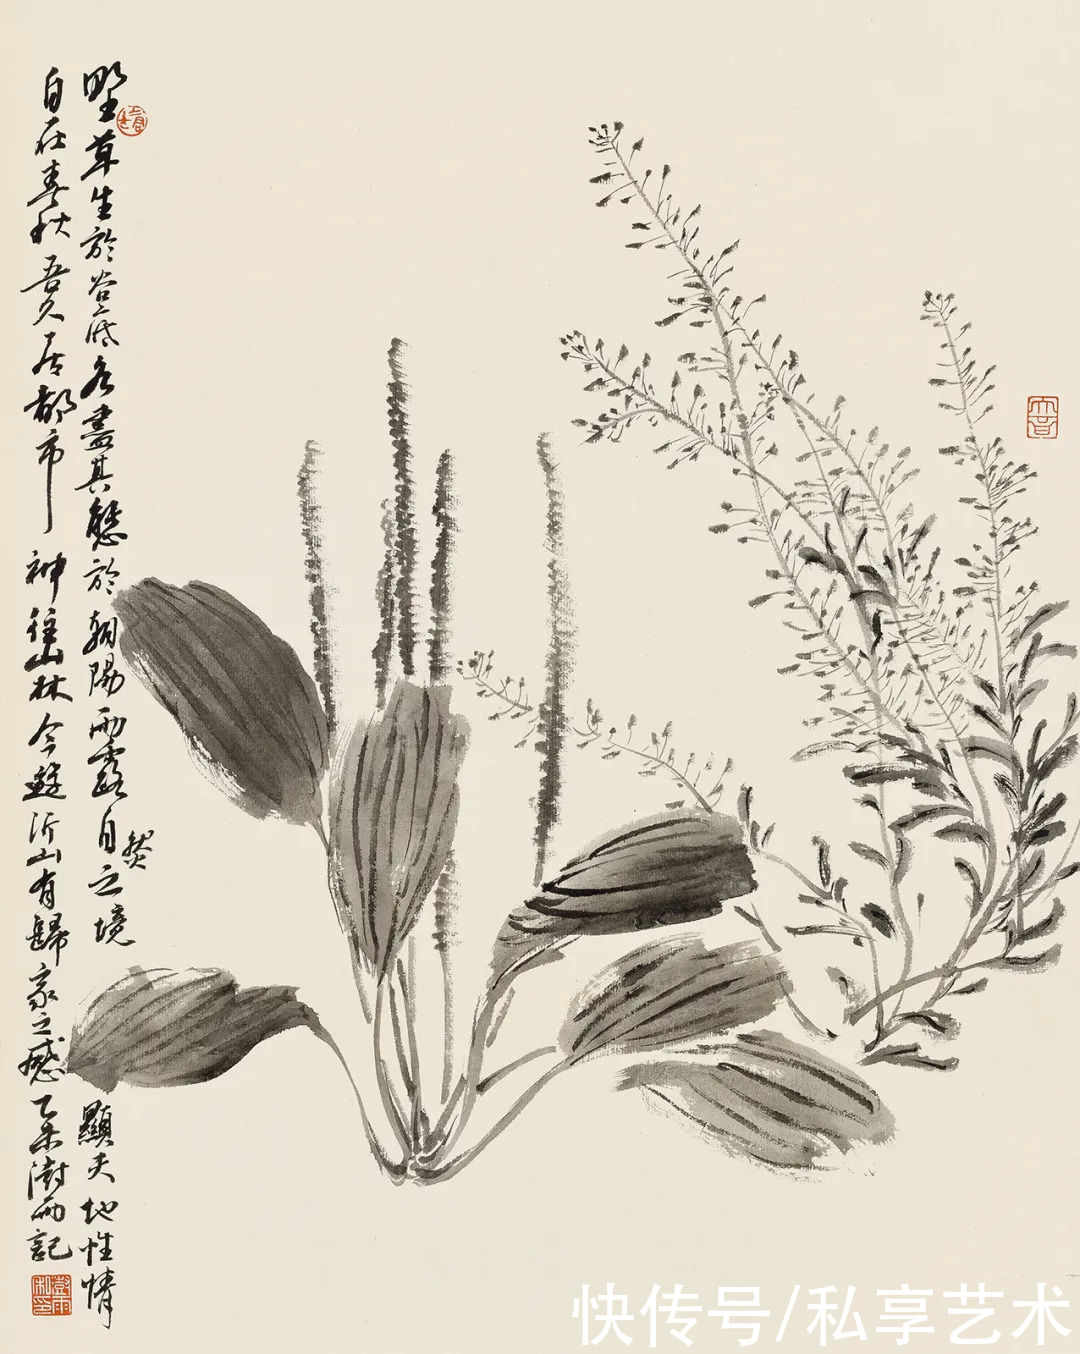 野草生於谷底各盡其態於朝陽雨露自然之境顯天地性情
自在春秋吾久居都市神往山林今遊沂山有歸家之感乙未澍雨記
快传号/私享艺术